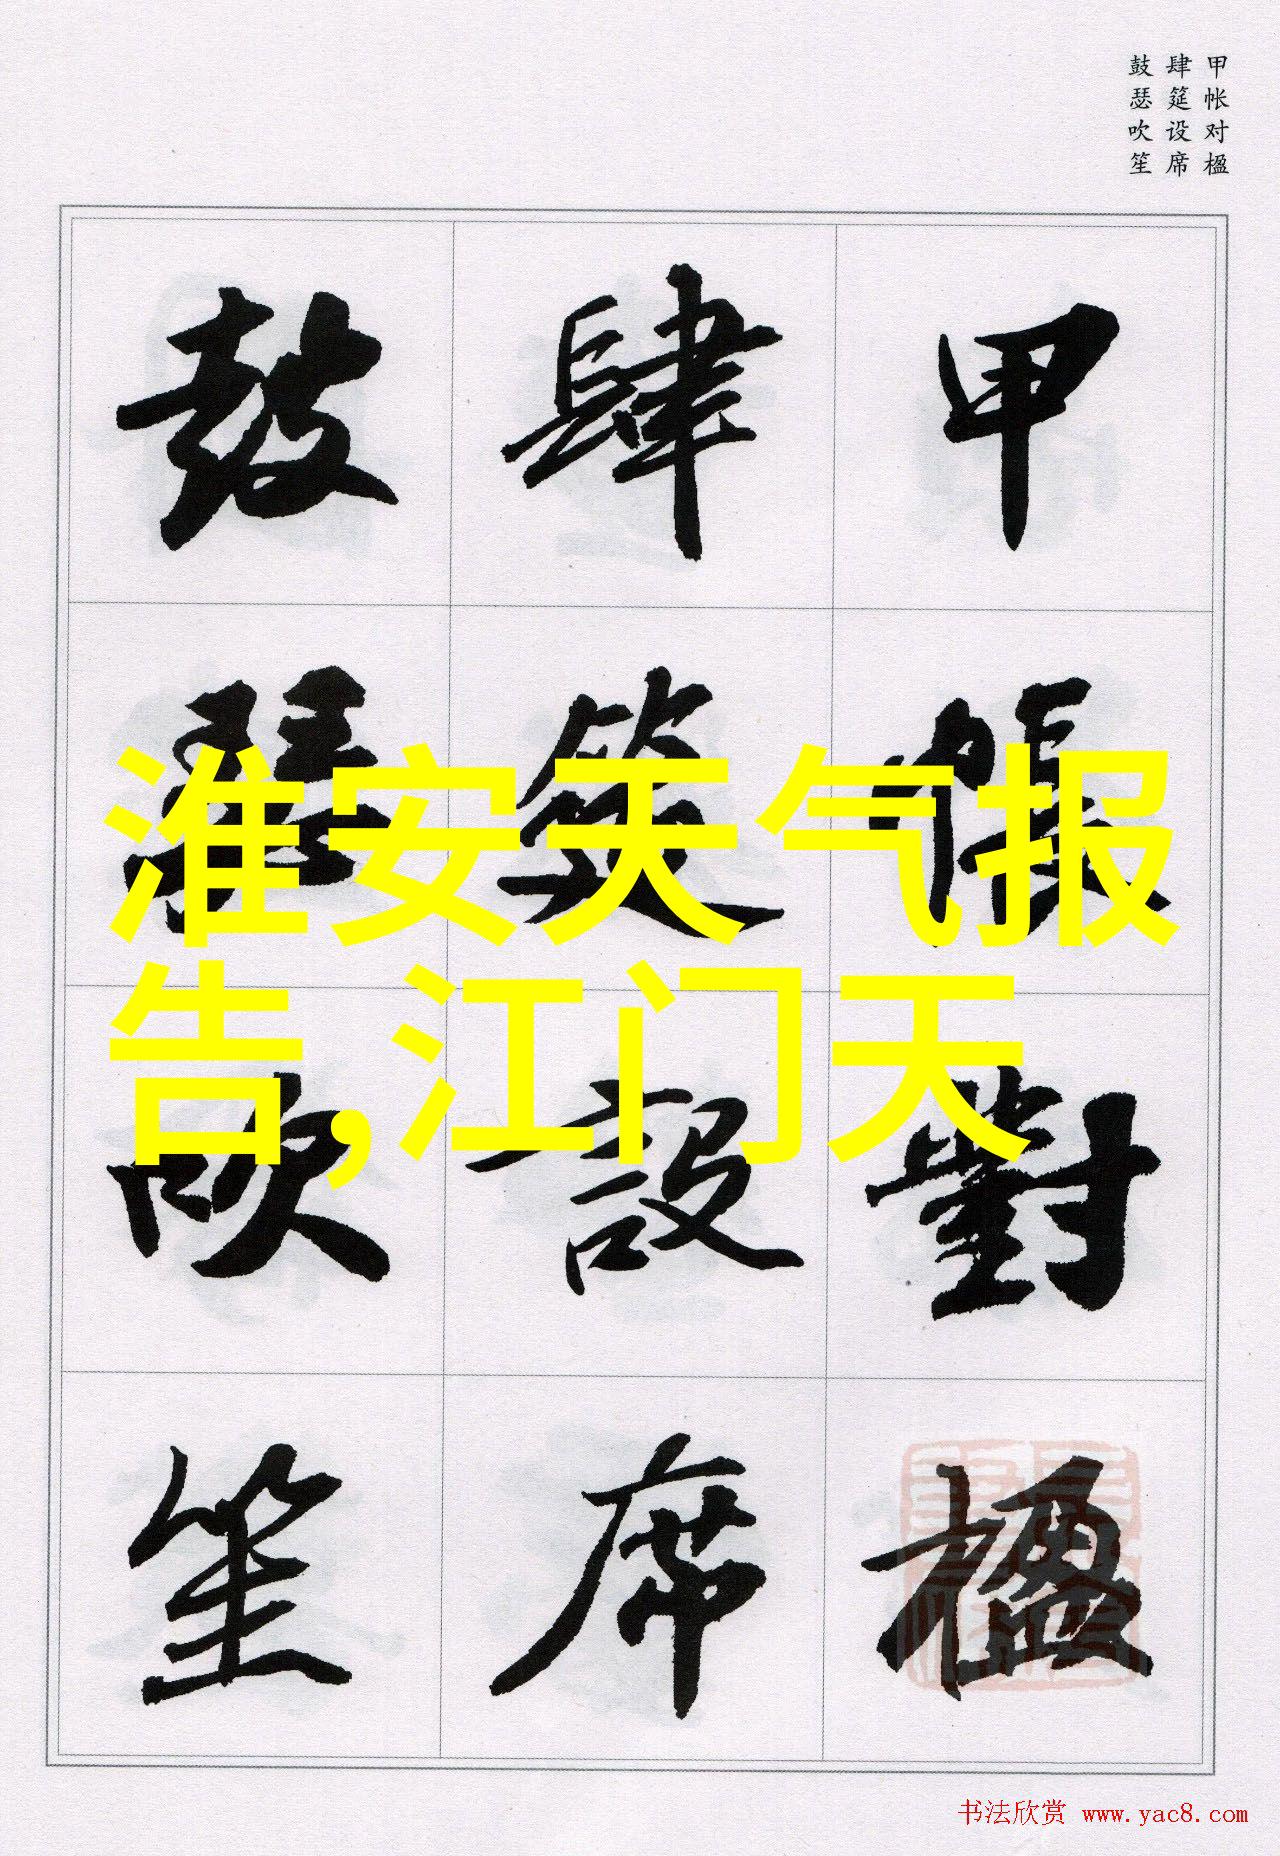 甲帐对楹
肆筵设席
鼓瑟吹笙
甲帳對楹
肆筵設席
鼓瑟吹笙
淮安天气报
告,江门天
书法欣赏 www.yac8.com